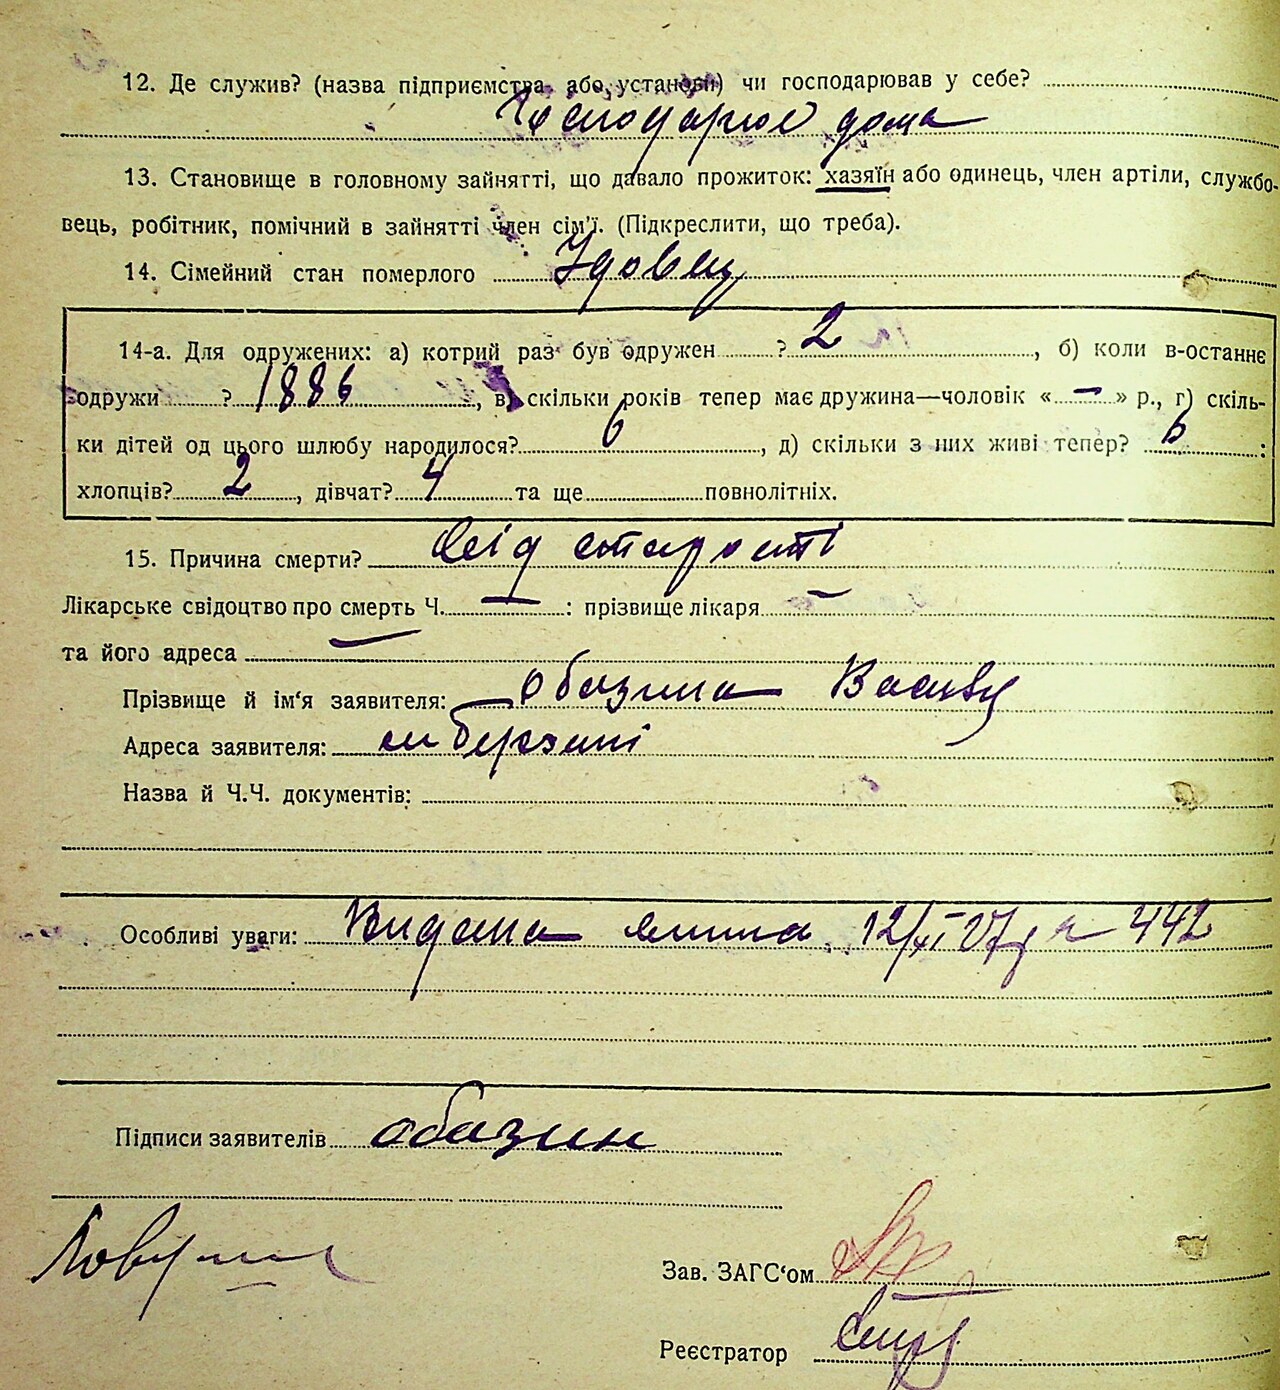 12. Де служив? (назва підприємства або установи) чи господарював у себе?
Господарює дома
13. Становище в головному зайнятті, що давало прожиток: хазяїн або одинець, член артіли, службо-
вець, робітник, помічний в зайнятті член сім'ї. (Підкреслити, що треба).
14. Сімейний стан померлого Удовец
14-а. Для одружених: а) котрий раз був одружен ? 2, б) коли в-останнє
одружи ? 1886, в) скільки років тепер має дружина—чоловік «—» р., г) скіль-
ки дітей од цього шлюбу народилося? 6, д) скільки з них живі тепер? 6 :
хлопців? 2, дівчат? 4 та ще повнолітніх.
15. Причина смерти? від старости
Лікарське свідоцтво про смерть Ч. — : прізвище лікаря —
та його адреса —
Прізвище й ім'я заявителя:
Адреса заявителя:
Назва й Ч.Ч. документів:
Особливі уваги: Видана 12/XI 27 442
Підписи заявителів
Зав. ЗАГС'ом
Реєстратор